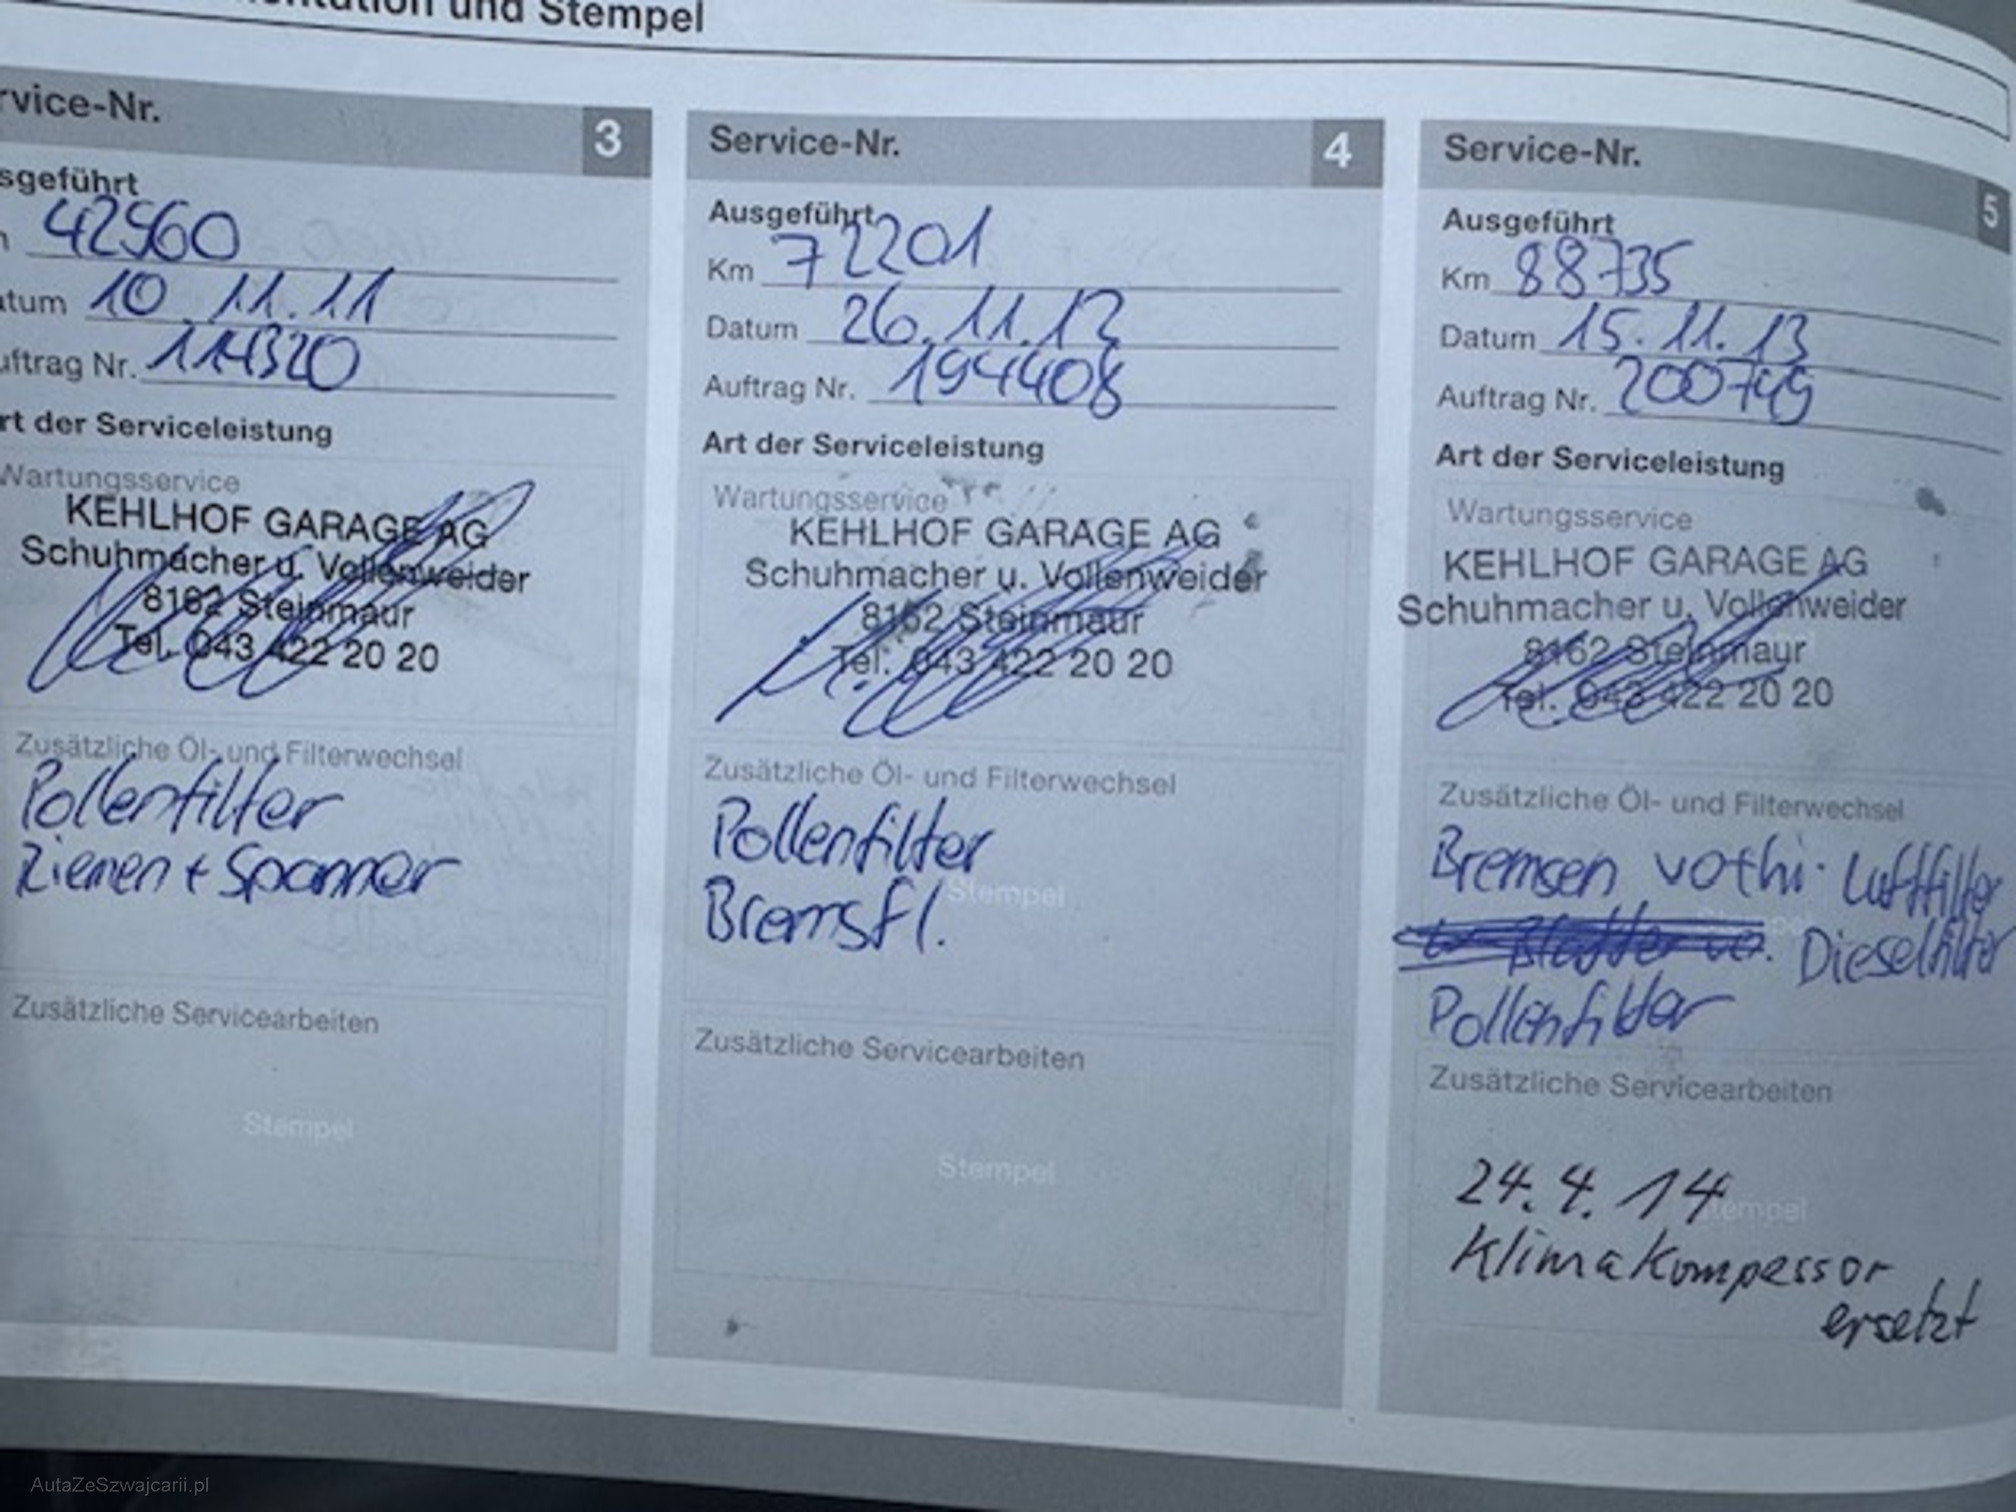 ntation und Stempel
rvice-Nr. 3
sgeführt
42560
atum 10.11.11
uftrag Nr. 114320
rt der Serviceleistung
Wartungsservice
KEHLHOF GARAGE AG
Schuhmacher u. Vollenweider
8162 Steinmaur
Tel. 043 422 20 20
Zusätzliche Öl- und Filterwechsel
Pollenfilter
Riemen + Spanner
Zusätzliche Servicearbeiten
Stempel
Service-Nr. 4
Ausgeführt
Km 72201
Datum 26.11.12
Auftrag Nr. 194408
Art der Serviceleistung
Wartungsservice
KEHLHOF GARAGE AG
Schuhmacher u. Vollenweider
8162 Steinmaur
Tel. 043 422 20 20
Zusätzliche Öl- und Filterwechsel
Pollenfilter
Stempel
Bremsfl.
Zusätzliche Servicearbeiten
Stempel
Service-Nr. 5
Ausgeführt
Km 88735
Datum 15.11.13
Auftrag Nr. 200749
Art der Serviceleistung
Wartungsservice
KEHLHOF GARAGE AG
Schuhmacher u. Vollenweider
8162 Steinmaur
Tel. 043 422 20 20
Zusätzliche Öl- und Filterwechsel
Bremsen vo+hi. Luftfilter
Dieselfilter
Pollenfilter
Zusätzliche Servicearbeiten
24.4.14
Stempel
Klimakompessor
ersetzt
AutaZeSzwajcarii.pl